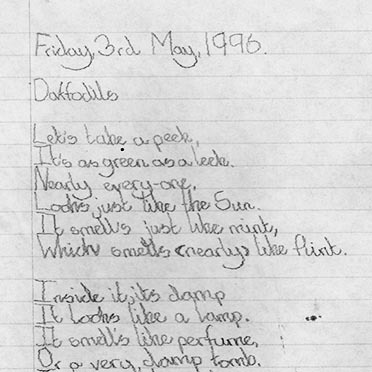 Friday, 3rd May, 1996.
Daffodills
Let's take a peek,
It's as green as a leek.
Nearly every-one,
Looks just like the Sun.
It smell's just like mint,
Which smells (nearly) like flint.
Inside it, it's damp
It Looks like a lamp.
It smell's like perfume,
Or a very, damp tomb.